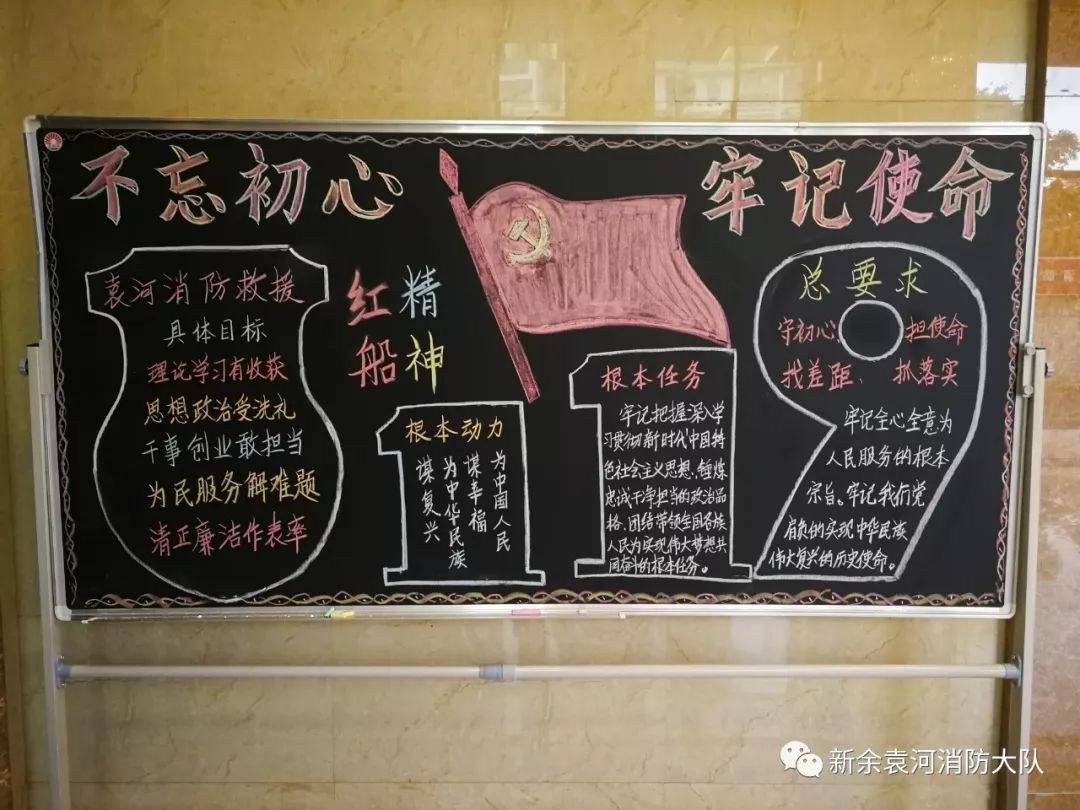 不忘初心
牢记使命
袁河消防救援
具体目标
理论学习有收获
思想政治受洗礼
干事创业敢担当
为民服务解难题
清正廉洁作表率
红船
精神
根本动力
为中国人民
谋幸福
为中华民族
谋复兴
根本任务
牢记把握深入学
习贯彻新时代中国特
色社会主义思想、锤炼
忠诚干净担当的政治品
格、团结带领全国各族
人民为实现伟大梦想共
同奋斗的根本任务。
总要求
守初心 担使命
找差距、抓落实
牢记全心全意为
人民服务的根本
宗旨。牢记我们党
肩负的实现中华民族
伟大复兴的历史使命。
新余袁河消防大队